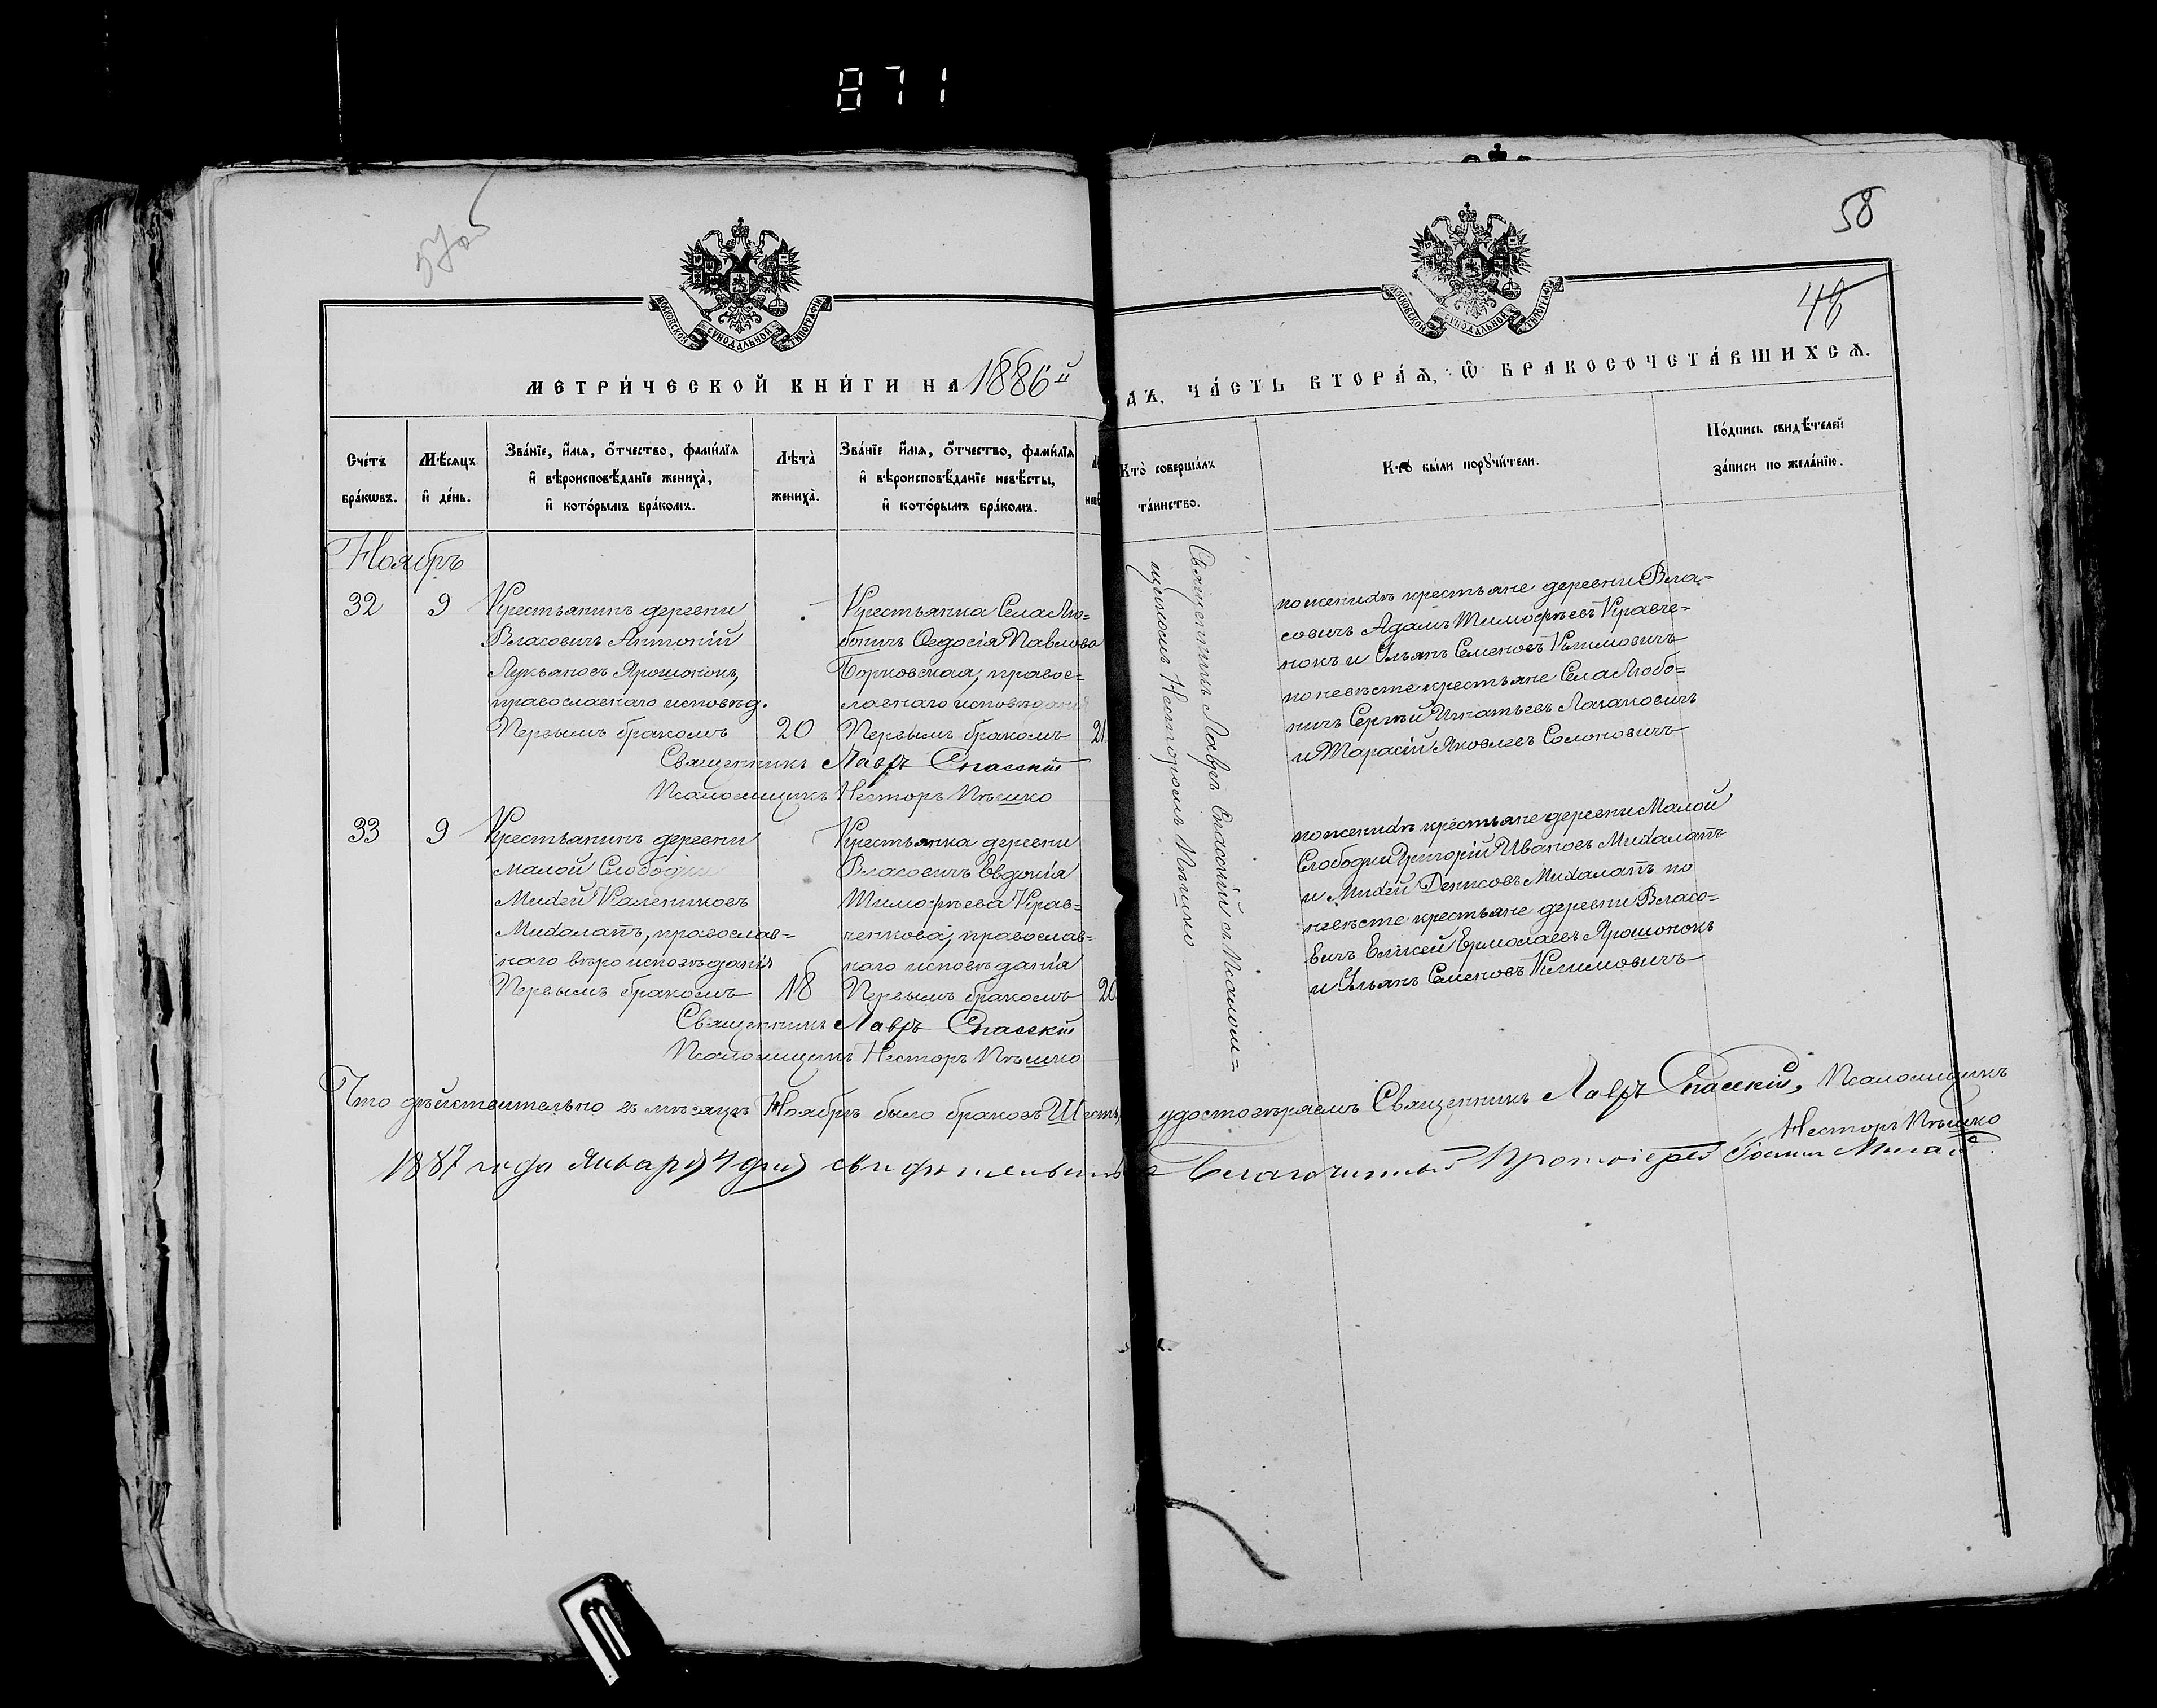 871
57об
58
48
МОСКОВСКОЙ СѴНОДАЛЬНОЙ ТИПОГРАФІИ
МОСКОВСКОЙ СѴНОДАЛЬНОЙ ТИПОГРАФІИ
МЕТРИ́ЧЕСКОЙ КНИ́ГИ НА 1886й
ДЪ, ЧА́СТЬ ВТОРА́Ѧ, Ѽ БРАКОСОЧЕТА́ВШИХСѦ.
Сче́тъ бра́кѡвъ.
Мѣ́сѧцъ и҆ де́нь.
Зва́нїе, и҆́мѧ, ѻ҆́тчество, фами́лїѧ и҆ вѣроисповѣ́данїе жениха̀, и҆ кото́рымъ бра́комъ.
Лѣта̀ жениха̀.
Зва́нїе и҆́мѧ, ѻ҆́тчество, фами́лїѧ и҆ вѣроисповѣ́данїе невѣ́сты, и҆ кото́рымъ бра́комъ.
Кто̀ соверша́лъ та́инство.
Кто̀ бы́ли порꙋчи́тели.
По́дпись свидѣ́телей за́писи по жела́нїю.
Ноябрь
32
9
Крестьянинъ деревни
Власовичъ Антоній
Лукьяновъ Ярошонокъ,
православнаго исповѣд.
Первымъ бракомъ
20
Крестьянка Села Лю-
боничъ Ѳедосія Павлова
Борковская, правос-
лавнаго исповѣданія
Первымъ бракомъ
21
Священникъ Лавръ Спасскій
Псаломщикъ Несторъ Пѣшко
Священникъ Лавръ Спасскій съ Псалом-
щикомъ Несторомъ Пѣшко
по женихѣ крестьяне деревни Вла-
совичъ Адамъ Тимофѣевъ Кравче-
нокъ и Ульянъ Семеновъ Климовичъ
по невѣсте крестьяне Села Любо-
ничъ Сергѣй Игнатьевъ Лаханович
и Тарасій Яковлевъ Солоновичъ
33
9
Крестьянинъ деревни
малой Слободки
Михей Калениковъ
Михалапъ, православ-
наго вѣроисповѣданія
Первымъ бракомъ
18
Крестьянка деревни
Власовичъ Евдокія
Тимофѣева Крав-
ченкова, православ-
наго исповѣданія
Первымъ бракомъ
20
Священникъ Лавръ Спасскій
Псаломщикъ Несторъ Пѣшко
по женихѣ крестьяне деревни Малой
Слободки Григорій Ивановъ Михалапъ
и Михей Денисовъ Михалапъ по
невѣсте крестьяне деревни Власо-
вичъ Елисей Ермолаевъ Ярошонокъ
и Ульянъ Семеновъ Климовичъ
Что дѣйствительно въ мѣсяцѣ Ноябрѣ было браковъ Шесть, удостовѣряемъ Священникъ Лавръ Спасскій, Псаломщикъ
Несторъ Пѣшко
1887 года Января 4 дня свидѣтельствовалъ Благочинный Протоіерей Іоаннъ